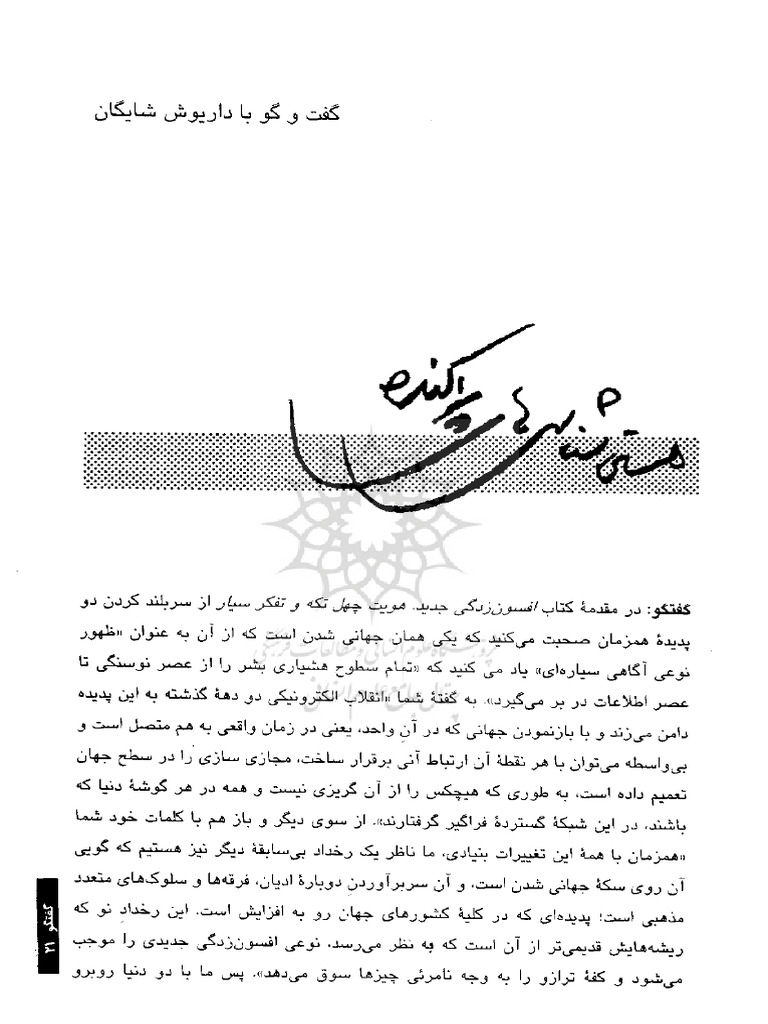 گفت و گو با داریوش شایگان
هستی شناسی های پراکنده
گفتگو: در مقدمهٔ کتاب افسون‌زدگی جدید، هویت چهل تکه و تفکر سیار از سربلند کردن دو
پدیدهٔ همزمان صحبت می‌کنید که یکی همان جهانی شدن است که از آن به عنوان «ظهور
نوعی آگاهی سیاره‌ای» یاد می کنید که «تمام سطوح هشیاری بشر را از عصر نوسنگی تا
عصر اطلاعات در بر می‌گیرد». به گفتهٔ شما «انقلاب الکترونیکی دو دههٔ گذشته به این پدیده
دامن می‌زند و با بازنمودن جهانی که در آنِ واحد، یعنی در زمان واقعی به هم متصل است و
بی‌واسطه می‌توان با هر نقطهٔ آن ارتباط آنی برقرار ساخت، مجازی سازی را در سطح جهان
تعمیم داده است، به طوری که هیچکس را از آن گریزی نیست و همه در هر گوشهٔ دنیا که
باشند، در این شبکهٔ گستردهٔ فراگیر گرفتارند». از سوی دیگر و باز هم با کلمات خود شما
«همزمان با همهٔ این تغییرات بنیادی، ما ناظر یک رخداد بی‌سابقهٔ دیگر نیز هستیم که گویی
آن روی سکهٔ جهانی شدن است، و آن سربرآوردنِ دوبارهٔ ادیان، فرقه‌ها و سلوک‌های متعدد
مذهبی است؛ پدیده‌ای که در کلیهٔ کشورهای جهان رو به افزایش است. این رخدادِ نو که
ریشه‌هایش قدیمی‌تر از آن است که به نظر می‌رسد، نوعی افسون‌زدگی جدیدی را موجب
می‌شود و کفهٔ ترازو را به وجه نامرئی چیزها سوق می‌دهد». پس ما با دو دنیا روبرو
گفتگو ۲۱
پژوهشگاه علوم انسانی و مطالعات فرهنگی
پرتال جامع علوم انسانی